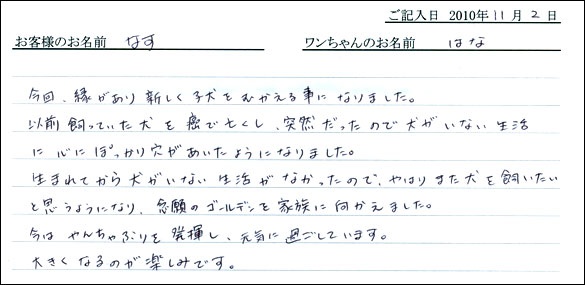 ご記入日 2010年11月2日
お客様のお名前 なす ワンちゃんのお名前 はな
今回、縁があり新しく子犬をむかえる事になりました。
以前飼っていた犬を癌で亡くし、突然だったので犬がいない生活
に心にぽっかり穴があいたようになりました。
生まれてから犬がいない生活がなかったので、やはりまた犬を飼いたい
と思うようになり、念願のゴールデンを家族に向かえました。
今はやんちゃぶりを発揮し、元気に過ごしています。
大きくなるのが楽しみです。